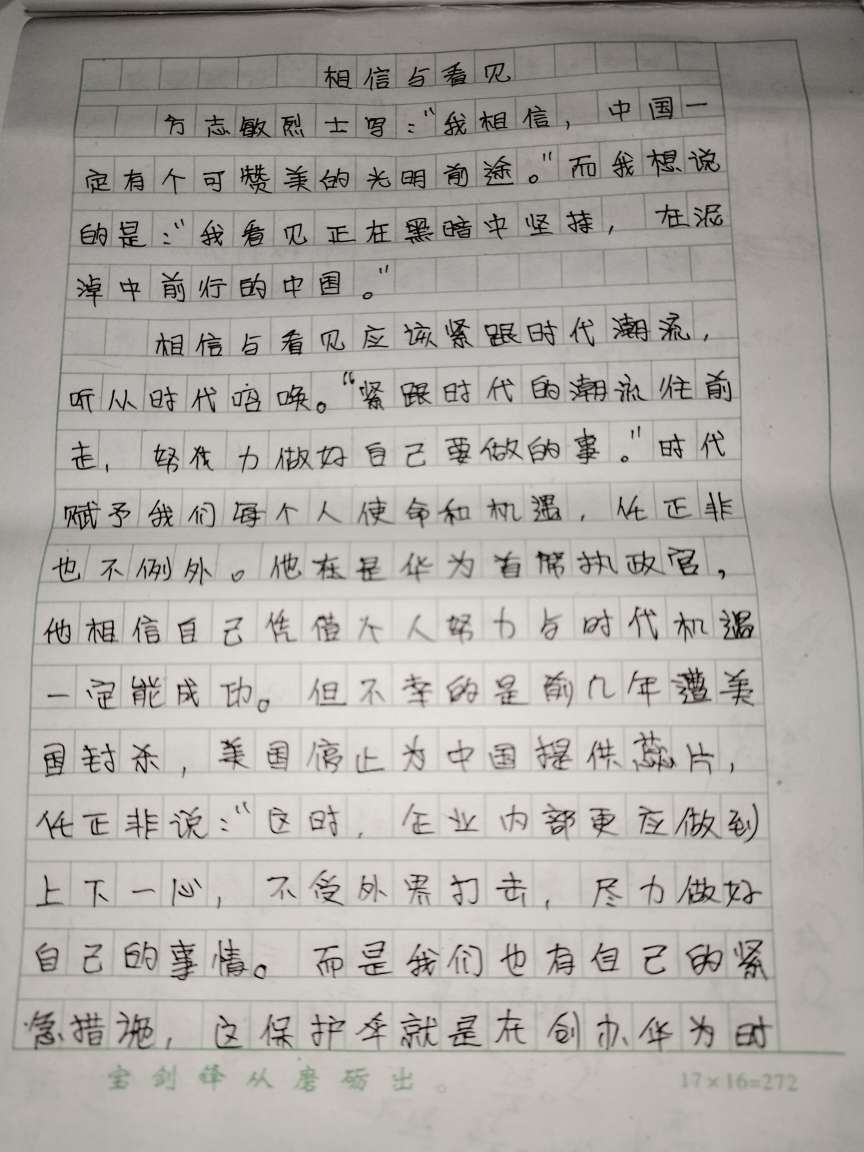 相信与看见
方志敏烈士写：“我相信，中国一
定有个可赞美的光明前途。”而我想说
的是：“我看见正在黑暗中坚持，在泥
淖中前行的中国。”
相信与看见应该紧跟时代潮流，
听从时代唤。“紧跟时代的潮流往前
走，努力做好自己要做的事。”时代
赋予我们每个人使命和机遇，任正非
也不例外。他在是华为首席执政官，
他相信自己凭借个人努力与时代机遇
一定能成功。但不幸的是前几年遭美
国封杀，美国停止为中国提供蕊片，
任正非说：“这时，企业内部更应做到
上下一心，不受外界打击，尽力做好
自己的事情。而是我们也有自己的紧
急措施，这保护伞就是在创办华为时
宝剑锋从磨砺出。
17×16=272